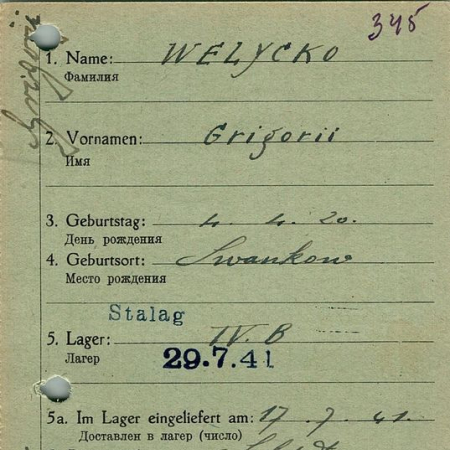 345
1. Name: WELYCKO
Фамилия
2. Vornamen: Grigorii
Имя
3. Geburtstag: 4. 4. 20.
День рождения
4. Geburtsort: Iwankow
Место рождения
Stalag
5. Lager: IV. B
Лагер
29.7.41
5a. Im Lager eingeliefert am: 17. 7. 41.
Доставлен в лагер (число)